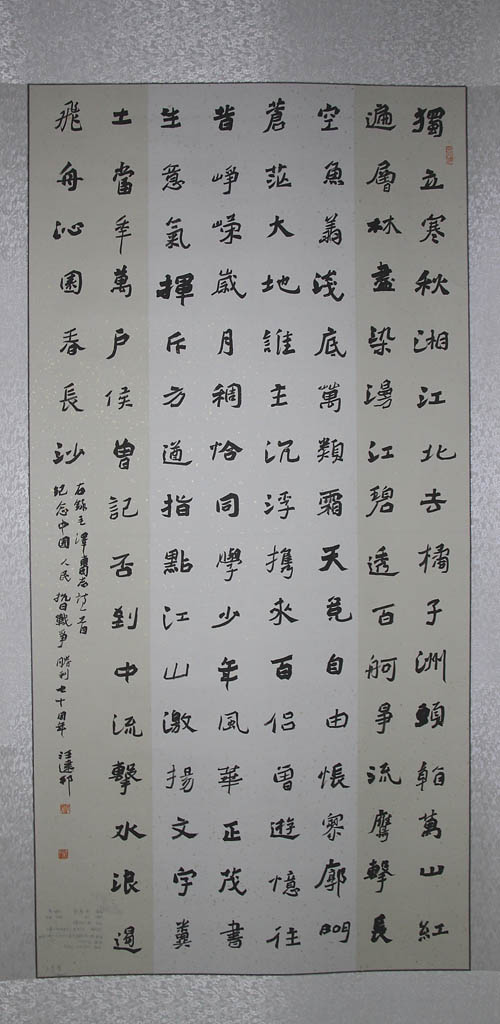 獨立寒秋湘江北去橘子洲頭看萬山紅
遍層林盡染漫江碧透百舸爭流鷹擊長
空魚翔淺底萬類霜天竞自由悵寥廓問
蒼茫大地誰主沉浮携來百侣曾遊憶往
昔崢嶸歲月稠恰同學少年風華正茂書
生意氣揮斥方遒指點江山激揚文字糞
土當年萬戶侯曾記否到中流擊水浪遏
飛舟沁園春長沙
右錄毛澤東同志詞一首
紀念中國人民抗日戰爭勝利七十周年